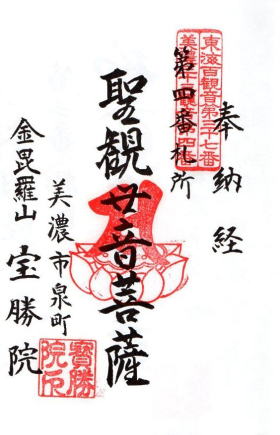 奉納経
東海百観音第三十七番
第四番札所
聖観世音菩薩
美濃市泉町
金毘羅山 宝勝院
寶勝院印